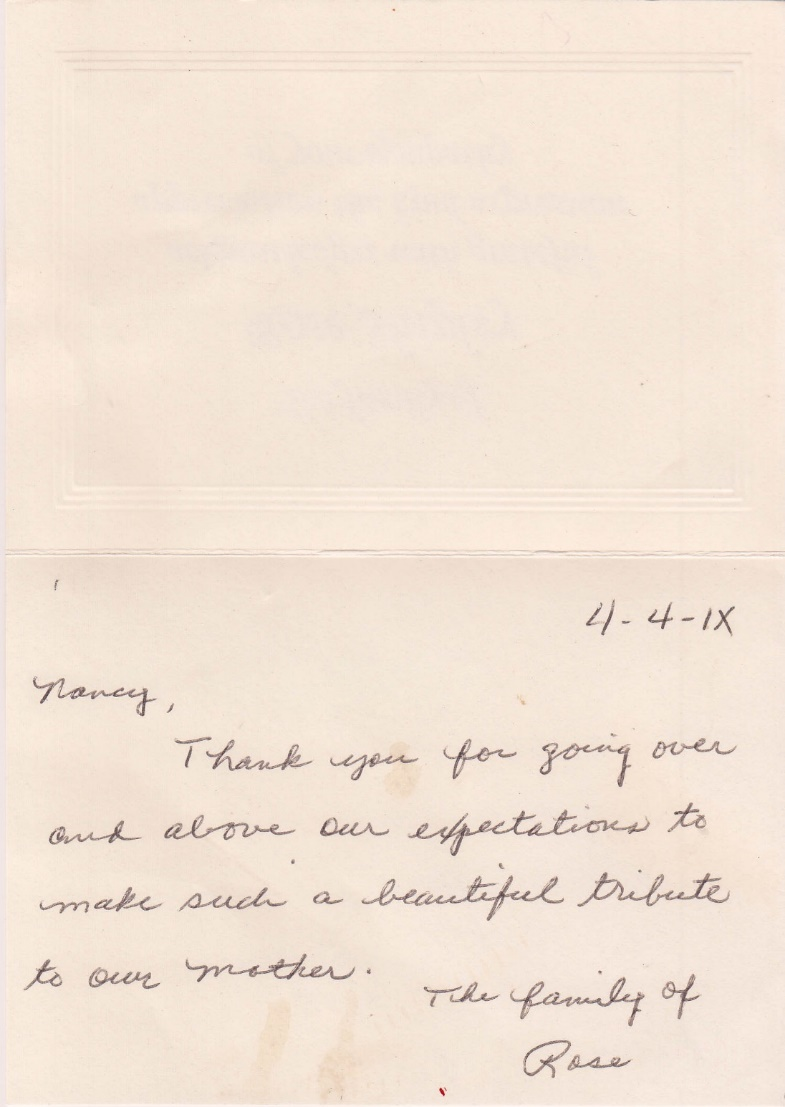 4-4-1X
Nancy,
Thank you for going over
and above our expectations to
make such a beautiful tribute
to our mother.
The family of
Rose